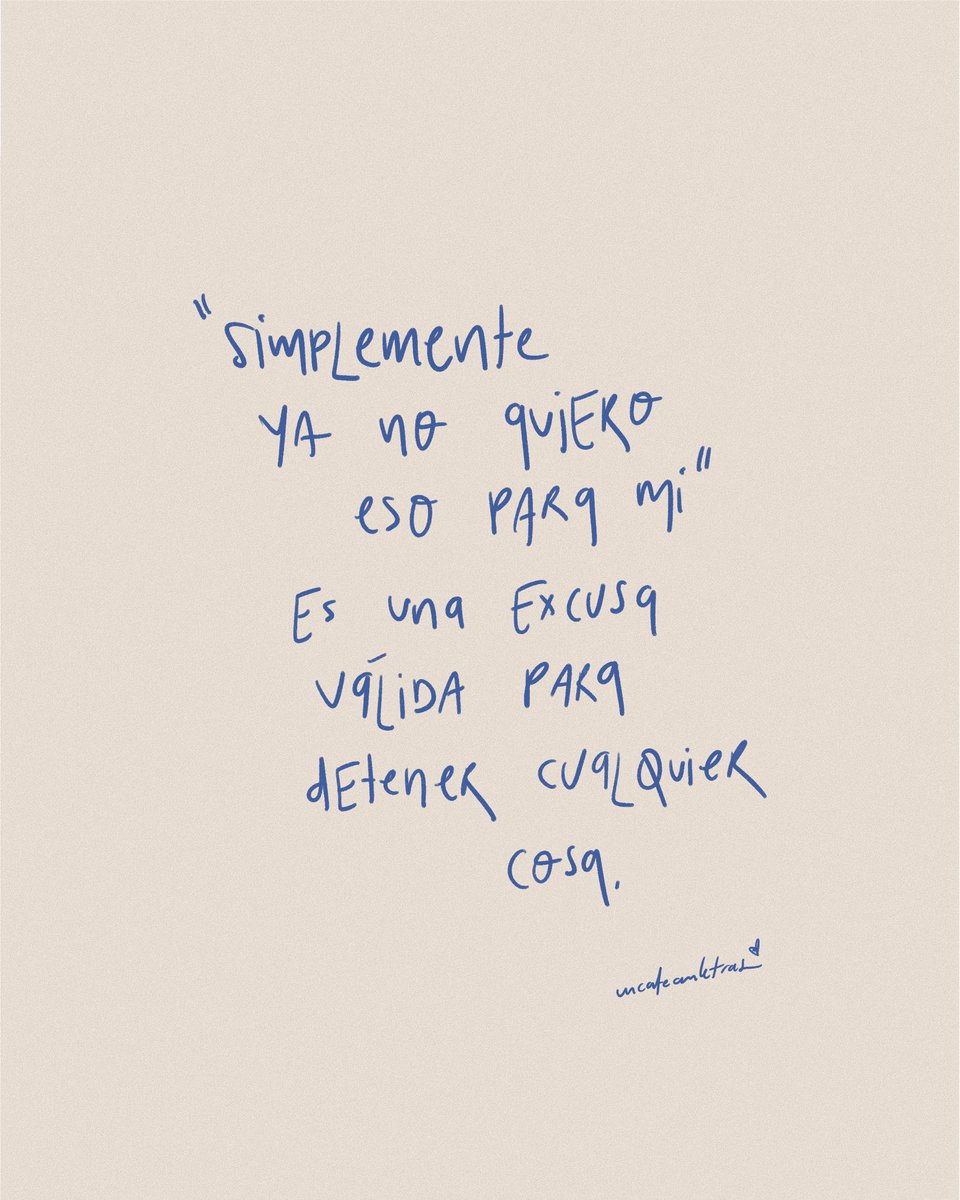 "simplemente
ya no quiero
eso para mi"
Es una excusa
válida para
detener cualquier
cosa.
uncafeconletras